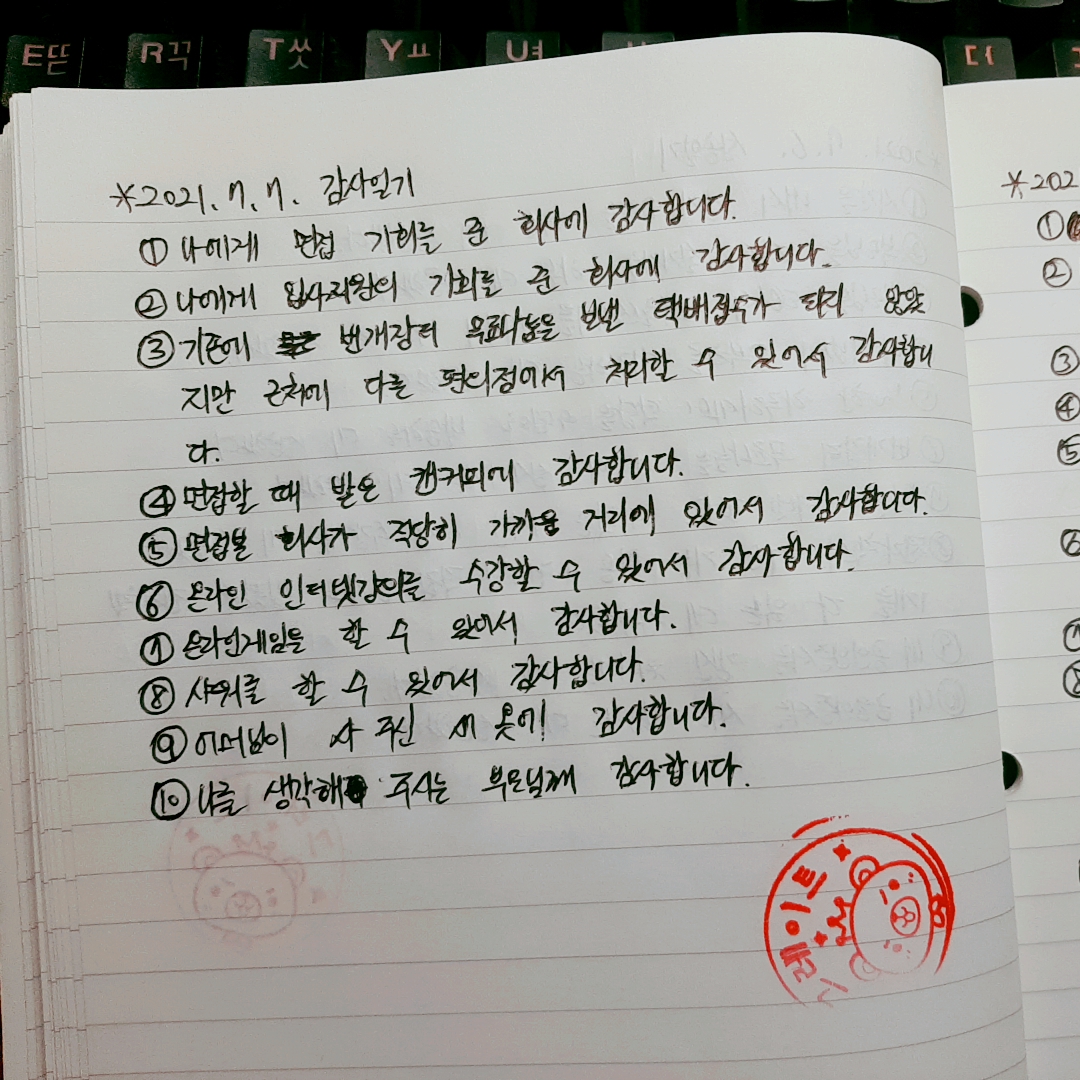 E ㄸㄷ
R ㄲㄱ
T ㅆㅅ
Y ㅛ
U ㅕ
*2021. 7. 7. 감사일기
① 나에게 면접 기회를 준 회사에 감사합니다.
② 나에게 입사지원의 기회를 준 회사에 감사합니다.
③ 기존에 번개장터 무료나눔을 보낸 택배접수가 되지 않았
지만 근처에 다른 편의점에서 처리할 수 있어서 감사합니
다.
④ 면접할 때 받은 캔커피에 감사합니다.
⑤ 면접본 회사가 적당히 가까운 거리에 있어서 감사합니다.
⑥ 온라인 인터넷강의를 수강할 수 있어서 감사합니다.
⑦ 온라인게임을 할 수 있어서 감사합니다.
⑧ 샤워를 할 수 있어서 감사합니다.
⑨ 어머님이 사 주신 새 옷에! 감사합니다.
⑩ 나를 생각해 주시는 부모님께 감사합니다.
*202
①
②
③
④
⑤
⑥
⑦
⑧